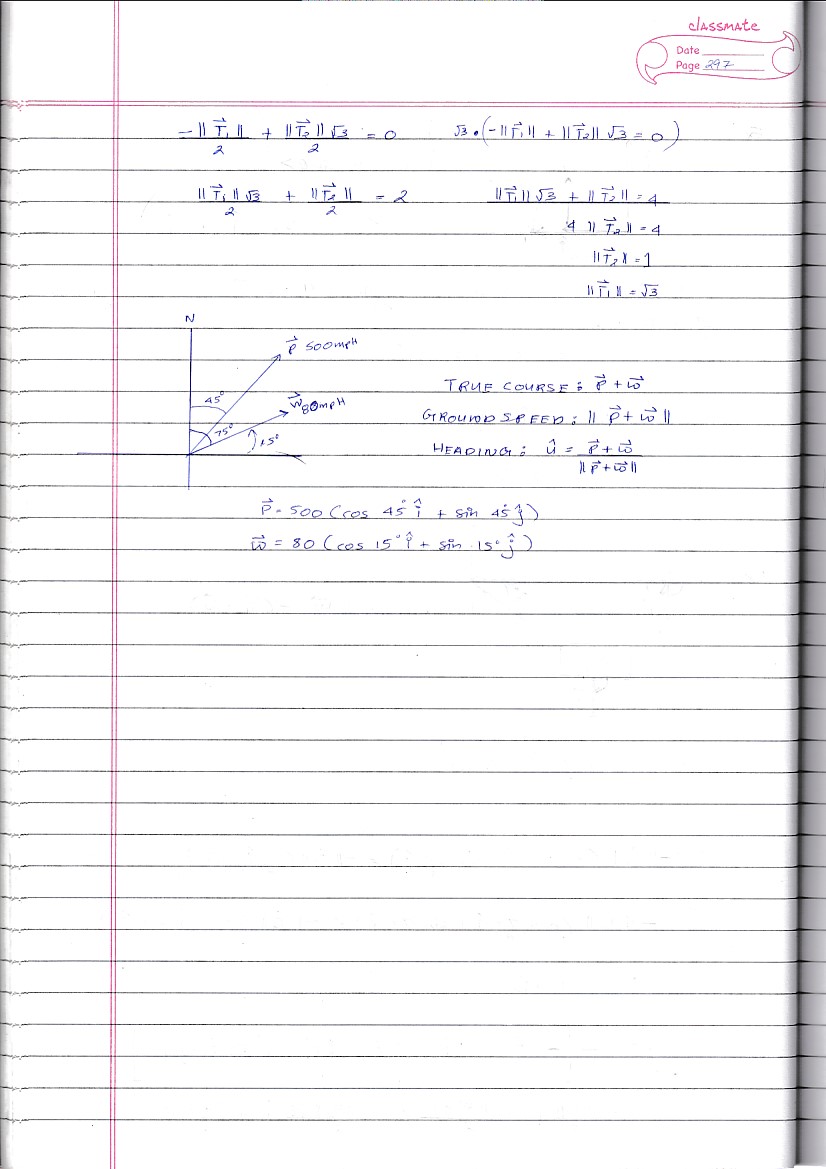 classmate
Date
Page 297
-||T⃗₁||/2 + ||T⃗₂||√3/2 = 0
√3•(-||T⃗₁|| + ||T⃗₂||√3 = 0)
||T⃗₁||√3/2 + ||T⃗₂||/2 = 2
||T⃗₁||√3 + ||T⃗₂|| = 4
4 ||T⃗₂|| = 4
||T⃗₂|| = 1
||T⃗₁|| = √3
N
P⃗ 500mpH
45°
W⃗ 80mpH
75°
15°
TRUE COURSE: P⃗ + w⃗
GROUND SPEED: ||P⃗ + w⃗||
HEADING: û = (P⃗ + w⃗)/||P⃗ + w⃗||
P⃗ = 500 (cos 45° î + sin 45° ĵ)
w⃗ = 80 (cos 15° î + sin 15° ĵ)